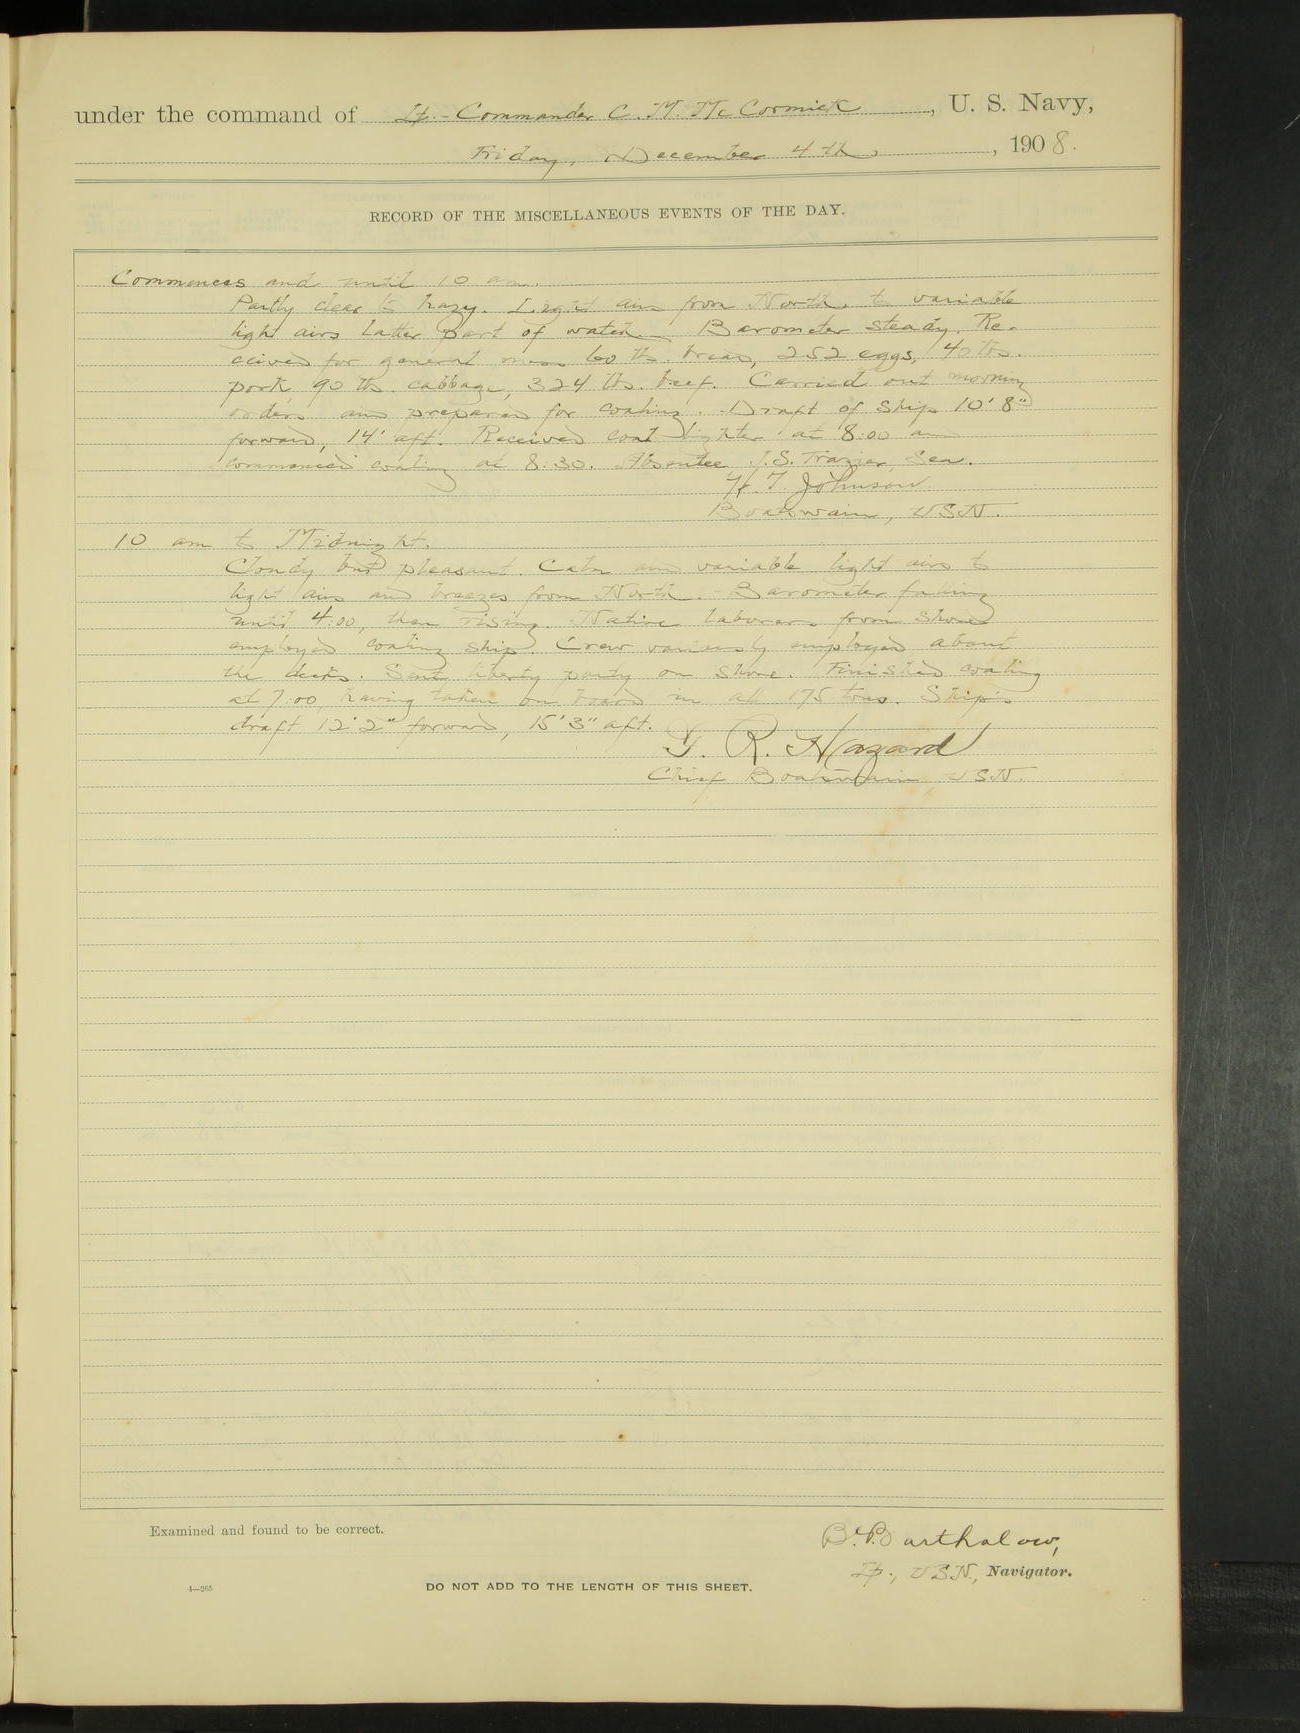 under the command of Lt.-Commander C. M. McCormick, U. S. Navy,
Friday, December 4th, 1908.
RECORD OF THE MISCELLANEOUS EVENTS OF THE DAY.
Commences and until 10 am.
Partly clear to hazy. Light airs from North, to variable
light airs latter part of watch. Barometer steady. Re-
ceived for general mess 60 lbs. bread, 252 eggs, 40 lbs.
pork, 90 lbs. cabbage, 324 lbs. beef. Carried out morning
orders and prepared for coaling. Draft of ship 10' 8"
forward, 14' aft. Received coal lighter at 8:00 am
commenced coaling at 8:30. Absentee J. S. Frazier, Sea.
Johnson
Boatswain, USN.
10 am to Midnight.
Cloudy but pleasant. Calm and variable light airs to
light airs and breezes from North. Barometer falling
until 4:00, then rising. Native laborers from shore
employed coaling ship. Crew variously employed about
the decks. Sent liberty party on shore. Finished coaling
at 7:00, having taken on board in all 175 tons. Ship's
draft 12' 2" forward, 15' 3" aft.
G. R. Hazard
Chief Boatswain USN.
Examined and found to be correct.
B. Barthalow,
Lt., USN., Navigator.
4—265
DO NOT ADD TO THE LENGTH OF THIS SHEET.